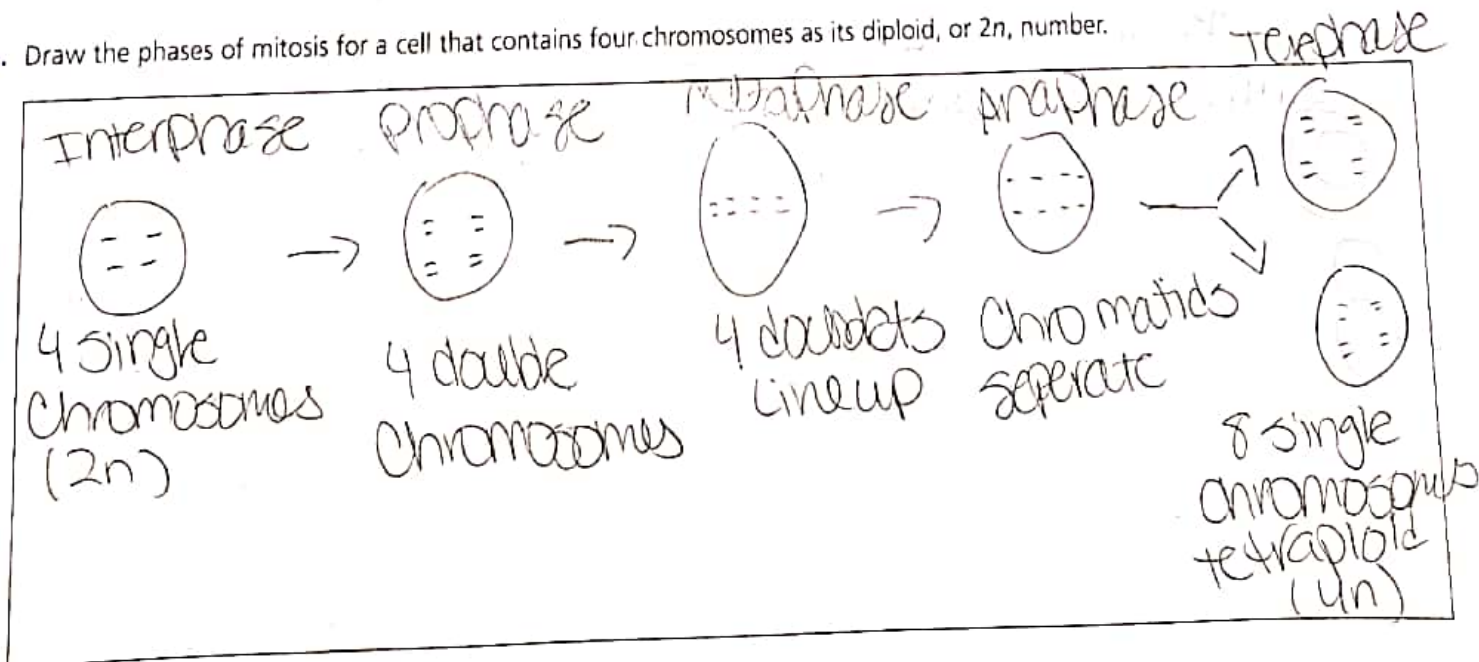 . Draw the phases of mitosis for a cell that contains four chromosomes as its diploid, or 2n, number.
Interphase
4 single
Chromosomes
(2n)
Prophase
4 double
Chromosomes
Metaphase
4
Line up
Anaphase
Chromatids
seperate
Telephase
8 single
Chromosomes
tetraploid
(4n)